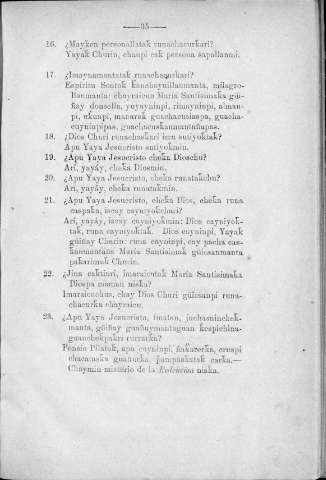 —35—
16. ¿Mayken personallatak runachacurkari?
Yayak Churin, chaupi cak persona sapallanmi.
17. ¿Imaynamantatak runachacurkari?
Espiritu Santok kanchayuillanmanta, milagro-
llanmanta: chayraicun Maria Santisimaka güi-
ñay doncella, yuyayninpi, rimayninpi, alman-
pi, ukunpi, manarak guachacusiaspa, guacha-
cuyninpipas, guachacuskanmantañapas.
18. ¿Dios Churi runachaskari ima sutiyoktak?
Apu Yaya Jesucristo sutiyokmin.
19. ¿Apu Yaya Jesucristo cheka Dioschu?
Arí, yayáy, cheka Diosmin.
20. ¿Apu Yaya Jesucristo, cheka runatakchu?
Arí, yayáy, cheka runatakmin.
21. ¿Apu Yaya Jesucristo, cheka Dios, cheka runa
caspaka, iscay cayniyokchari?
Arí, yayáy, iscay cayniyokmin: Dios cayniyok-
tak, runa cayniyoktak. Dios cayninpi, Yayak
güiñay Churin: runa cayninpi, cay pacha cas-
kanmantaña Maria Santisimak güicsanmanta
pakarimuk Churin.
22. ¿Jina caktinri, imaraicutak Maria Santisimaka
Diospa maman niska?
Imaraicuchus, chay Dios Churi güicsanpi runa-
chacurka chayraicu.
23. ¿Apu Yaya Jesucristo, imatan, juchasninchek-
manta, güiñay guañuymantaguan kespichina-
guanchekpakri rurarka?
Poncio Pilatok, apu cayninpi, ñakarerka, cruspi
chacataska guañurka, pampaskatak carka.—
Chaymin misterio de la Redencion niska.